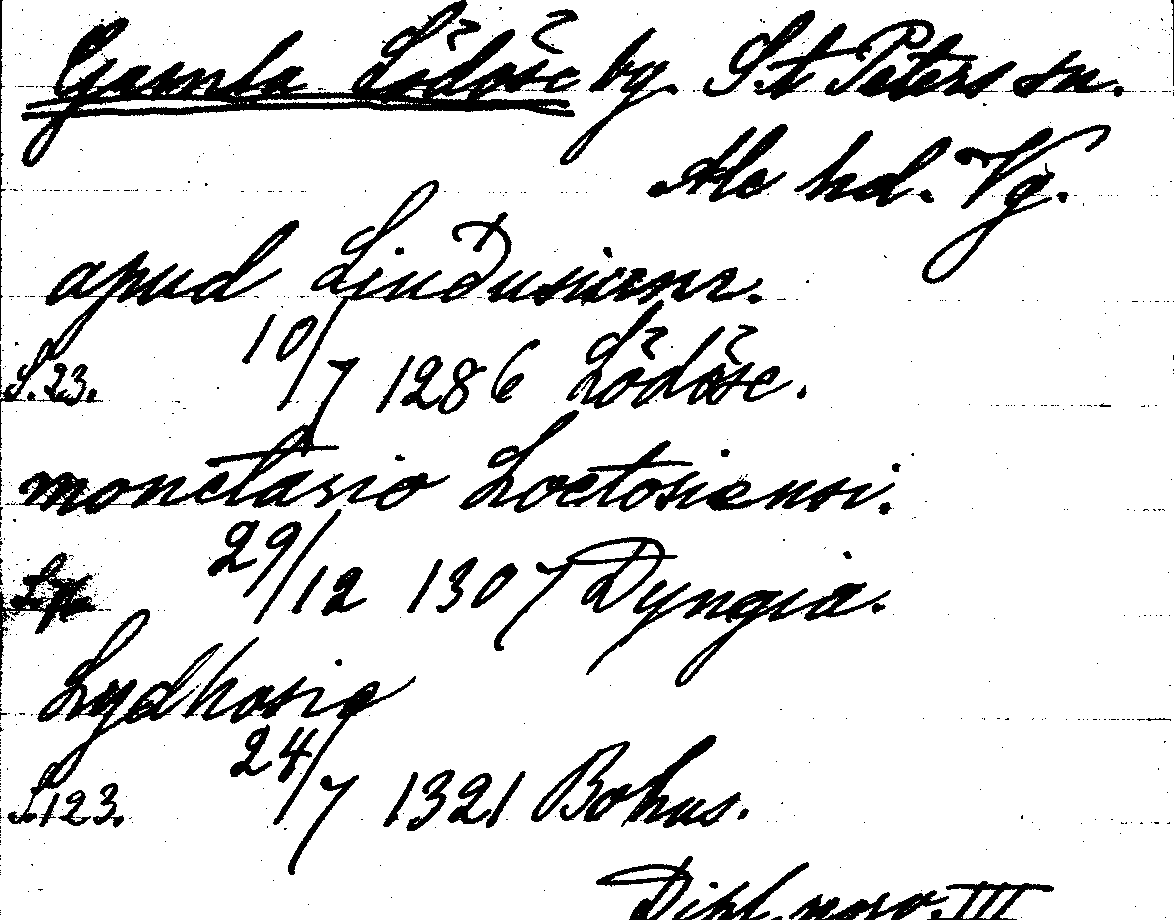 Gamla Lödöse by. S:t Peters sn.
Ale hd. Vg.
apud Liuđusium.
S. 23. 10/7 1286 Lödöse.
monetario Loetosiensi.
29/12 1307 Dyngia.
Lydhosia
S. 123. 24/7 1321 Bohus.
Dipl. norv. III